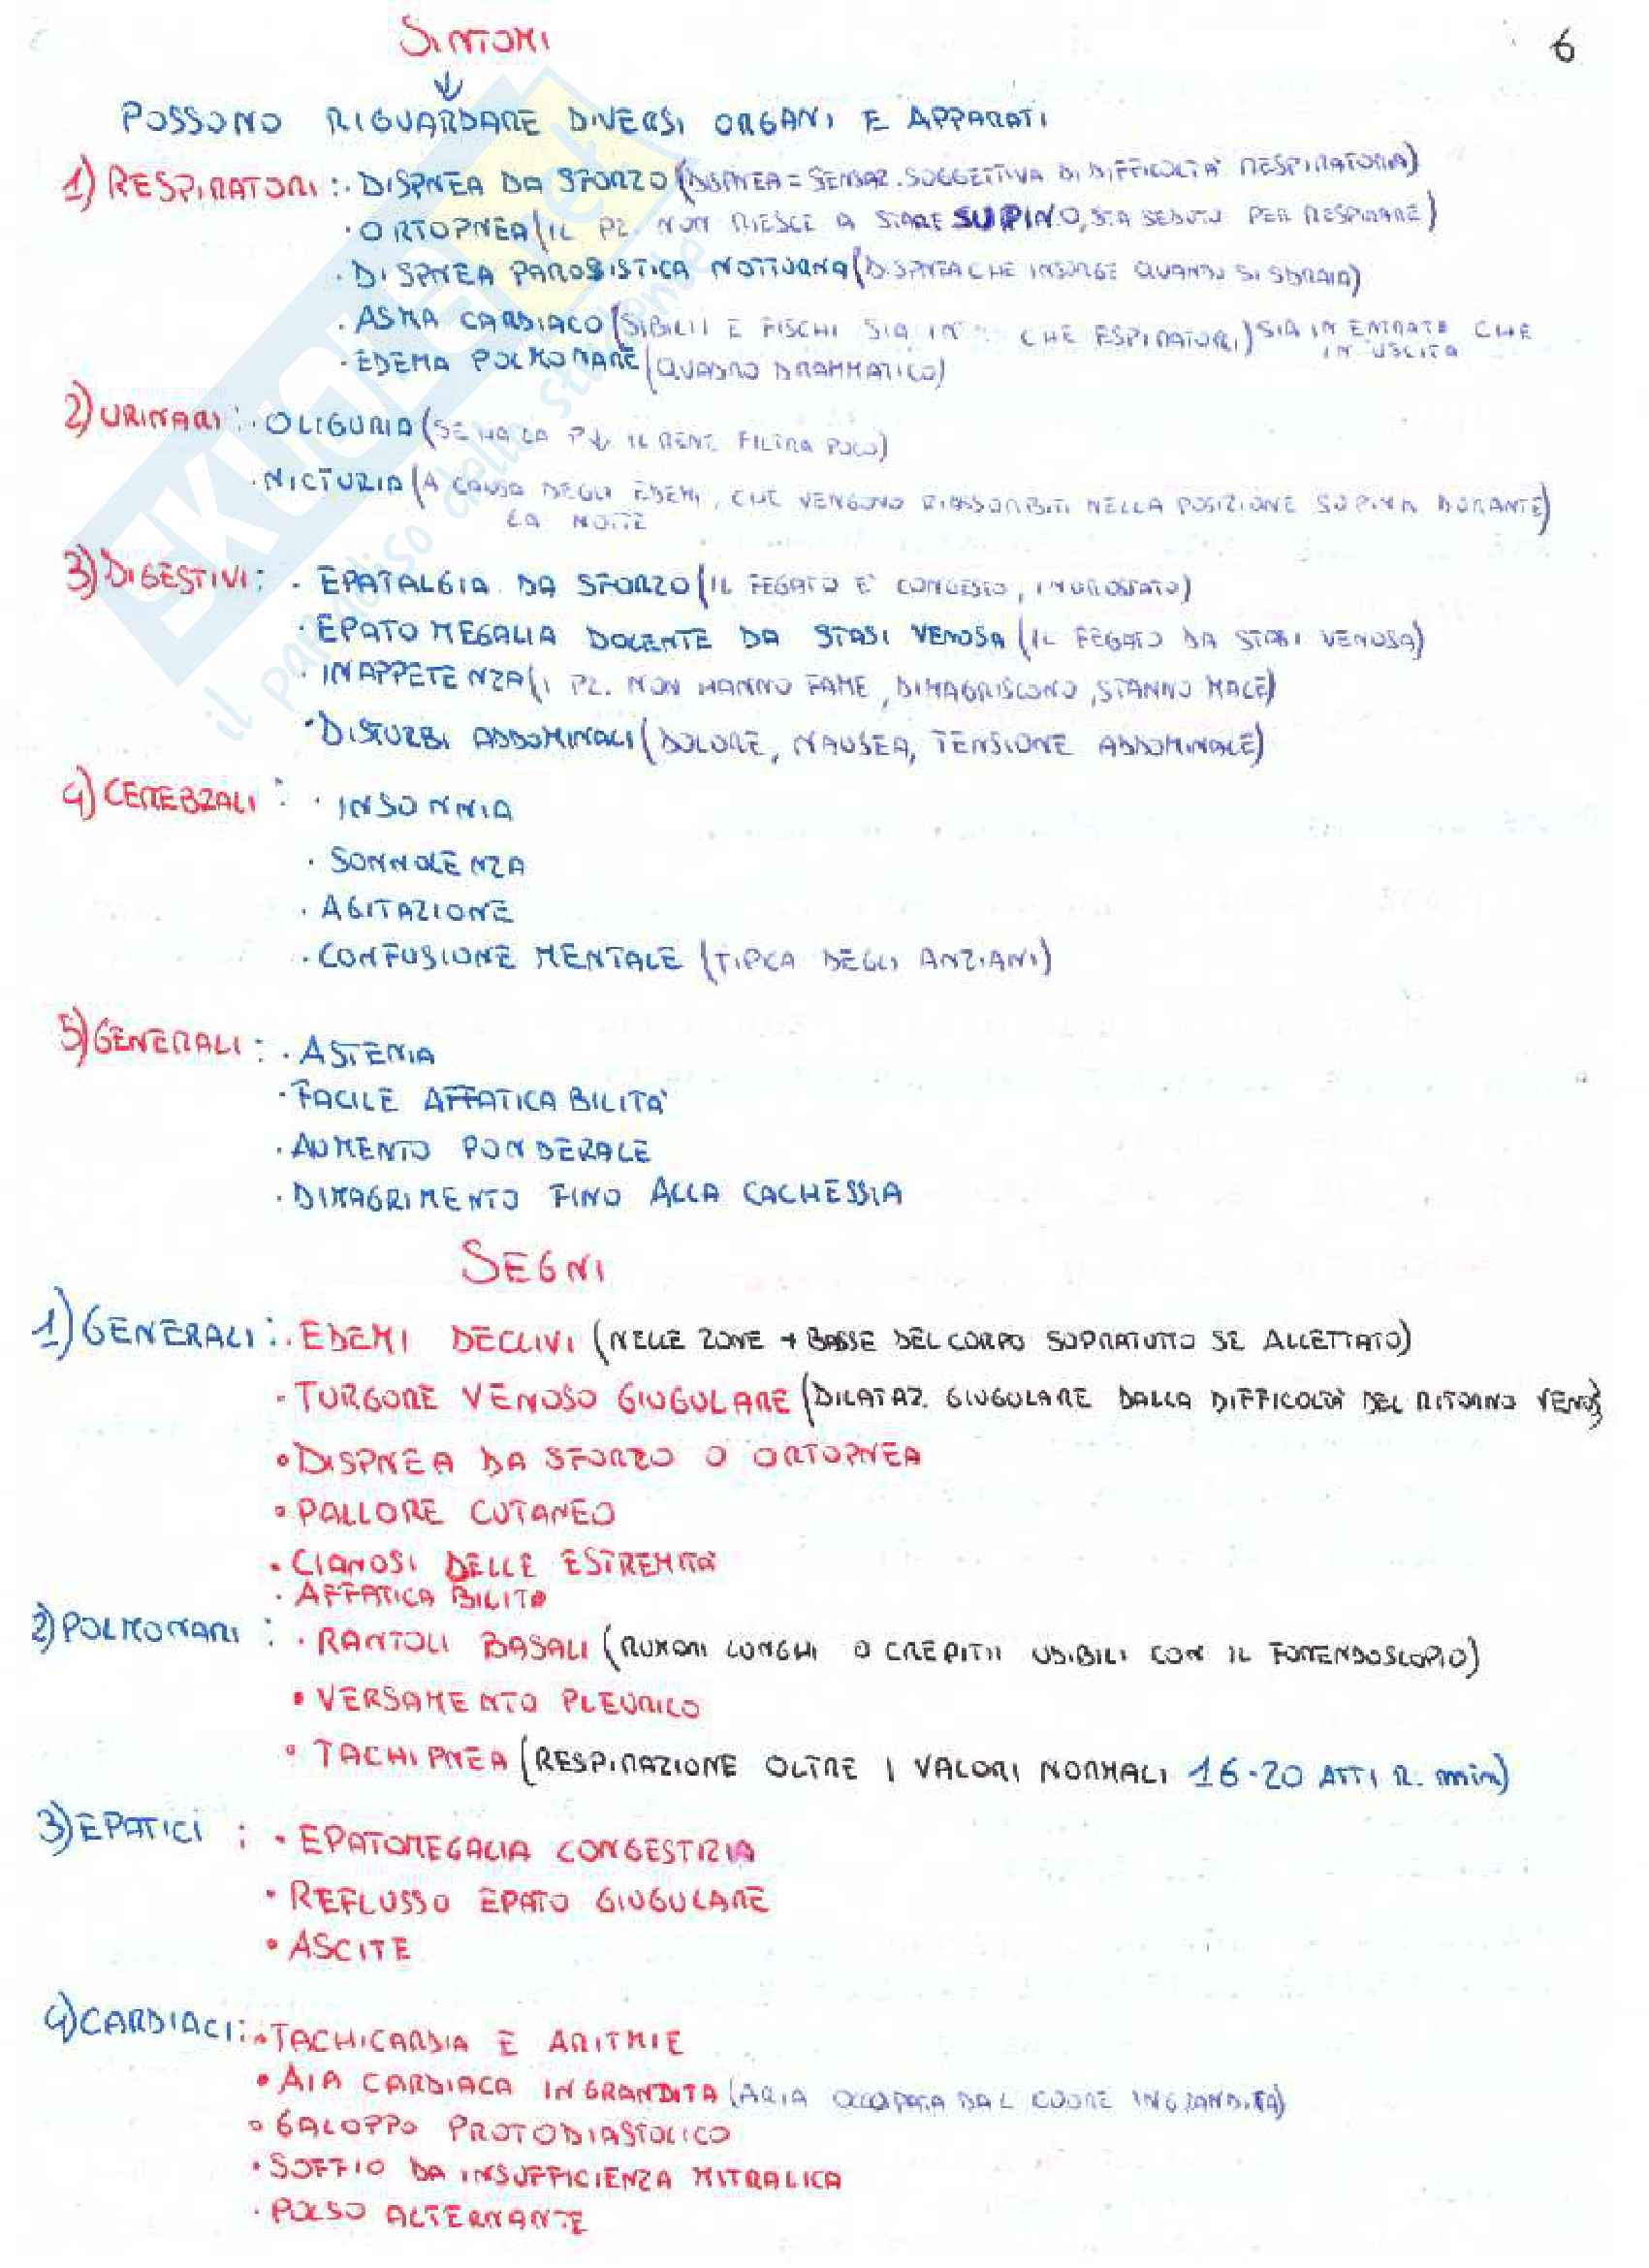 SINTOMI
6
↓
POSSONO RIGUARDARE DIVERSI ORGANI E APPARATI
1) RESPIRATORI: · DISPNEA DA SFORZO (DISPNEA = SENSAZ. SOGGETTIVA DI DIFFICOLTA' RESPIRATORIA)
· ORTOPNEA (IL PZ. NON RIESCE A STARE SUPINO, STA SEDUTO PER RESPIRARE)
· DISPNEA PAROSISTICA NOTTURNA (DISPNEA CHE INSORGE QUANDO SI SDRAIA)
· ASMA CARDIACO (SIBILII E FISCHI SIA IN CHE ESPIRATORI) SIA IN ENTRATA CHE IN USCITA
· EDEMA POLMONARE (QUADRO DRAMMATICO)
2) URINARI: · OLIGURIA (SE HA LA P↓ IL RENE FILTRA POCO)
· NICTURIA (A CAUSA DEGLI EDEMI, CHE VENGONO RIASSORBITI NELLA POSIZIONE SUPINA DURANTE)
LA NOTTE
3) DIGESTIVI: · EPATALGIA DA SFORZO (IL FEGATO E' CONGESTO, INGROSSATO)
· EPATOMEGALIA DOLENTE DA STASI VENOSA (IL FEGATO DA STASI VENOSA)
· INAPPETENZA (I PZ. NON HANNO FAME, DIMAGRISCONO, STANNO MALE)
· DISTURBI ADDOMINALI (DOLORE, NAUSEA, TENSIONE ADDOMINALE)
4) CEREBRALI: · INSONNIA
· SONNOLENZA
· AGITAZIONE
· CONFUSIONE MENTALE (TIPICA DEGLI ANZIANI)
5) GENERALI: · ASTENIA
· FACILE AFFATICABILITA'
· AUMENTO PONDERALE
· DIMAGRIMENTO FINO ALLA CACHESSIA
SEGNI
1) GENERALI: · EDEMI DECLIVI (NELLE ZONE + BASSE DEL CORPO SOPRATUTTO SE ALLETTATO)
· TURGORE VENOSO GIUGULARE (DILATAZ. GIUGULARE DALLA DIFFICOLTA' DEL RITORNO VENOS)
· DISPNEA DA SFORZO O ORTOPNEA
· PALLORE CUTANEO
· CIANOSI DELLE ESTREMITA'
· AFFATICABILITA
2) POLMONARI: · RANTOLI BASALI (RUMORI LUNGHI O CREPITII UDIBILI CON IL FONENDOSCOPIO)
· VERSAMENTO PLEURICO
· TACHIPNEA (RESPIRAZIONE OLTRE I VALORI NORMALI 16-20 ATTI R. min)
3) EPATICI: · EPATOMEGALIA CONGESTIZIA
· REFLUSSO EPATO GIUGULARE
· ASCITE
4) CARDIACI: · TACHICARDIA E ARITMIE
· AIA CARDIACA INGRANDITA (ARIA OCCUPATA DAL CUORE INGRANDITA)
· GALOPPO PROTODIASTOLICO
· SOFFIO DA INSUFFICIENZA MITRALICA
· POLSO ALTERNANTE
SKUOLA.net
il paradiso dello studente